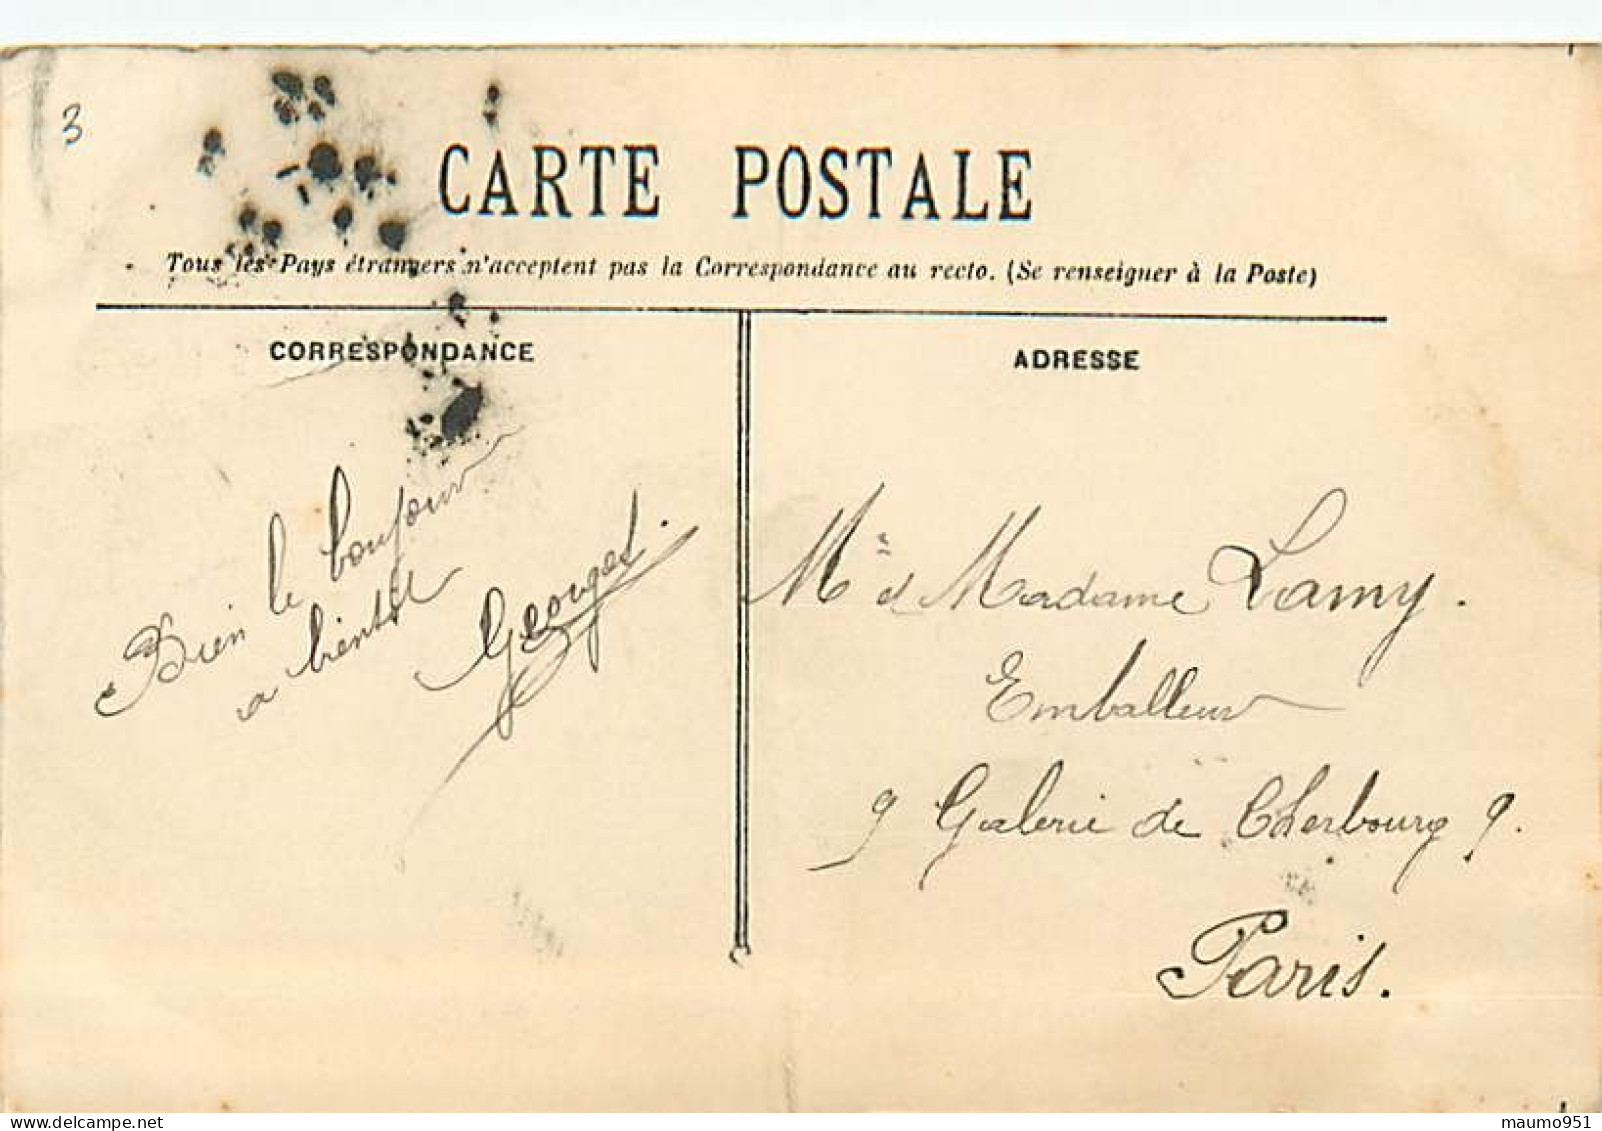 3
CARTE POSTALE
Tous les Pays étrangers n'acceptent pas la Correspondance au recto. (Se renseigner à la Poste)
CORRESPONDANCE
Bien le bonjour
a bientot
Georges.
ADRESSE
Mr et Madame Lamy.
Emballeur
9 Galerie de Cherbourg 9.
Paris.
maumo951